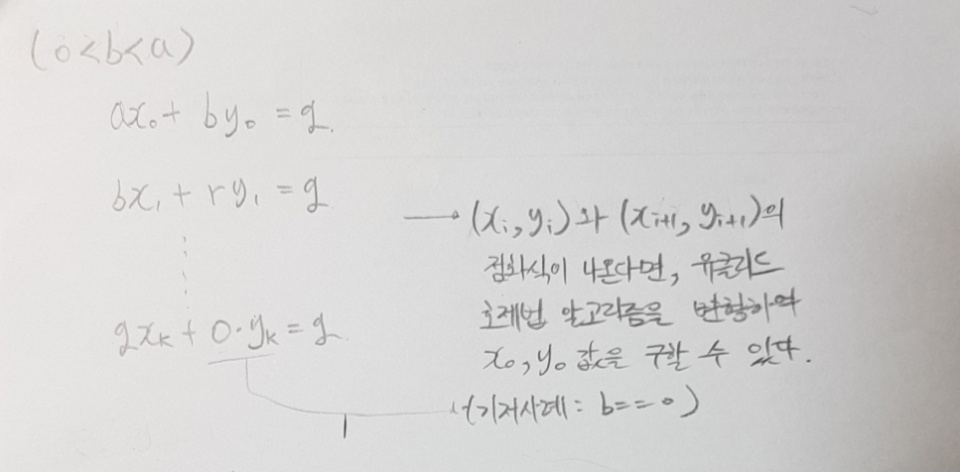 (0<b<a)
ax₀ + by₀ = g.
bx₁ + ry₁ = g
→ (xᵢ, yᵢ)와 (xᵢ₊₁, yᵢ₊₁)의
점화식이 나온다면, 유클리드
호제법 알고리즘을 변형하여
gxₖ + 0·yₖ = g.
x₀, y₀ 값을 구할 수 있다.
(기저사례: b==0)